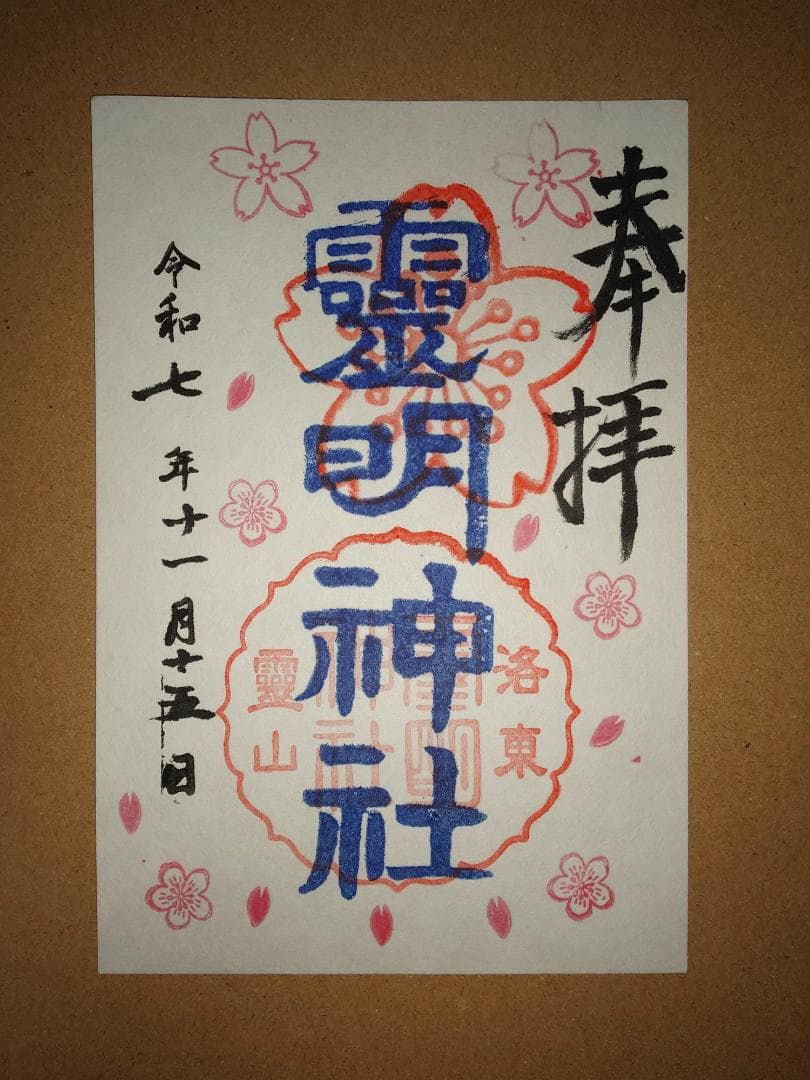 奉拝
靈明神社
洛東
靈明神社
靈山
令和七年十一月十五日